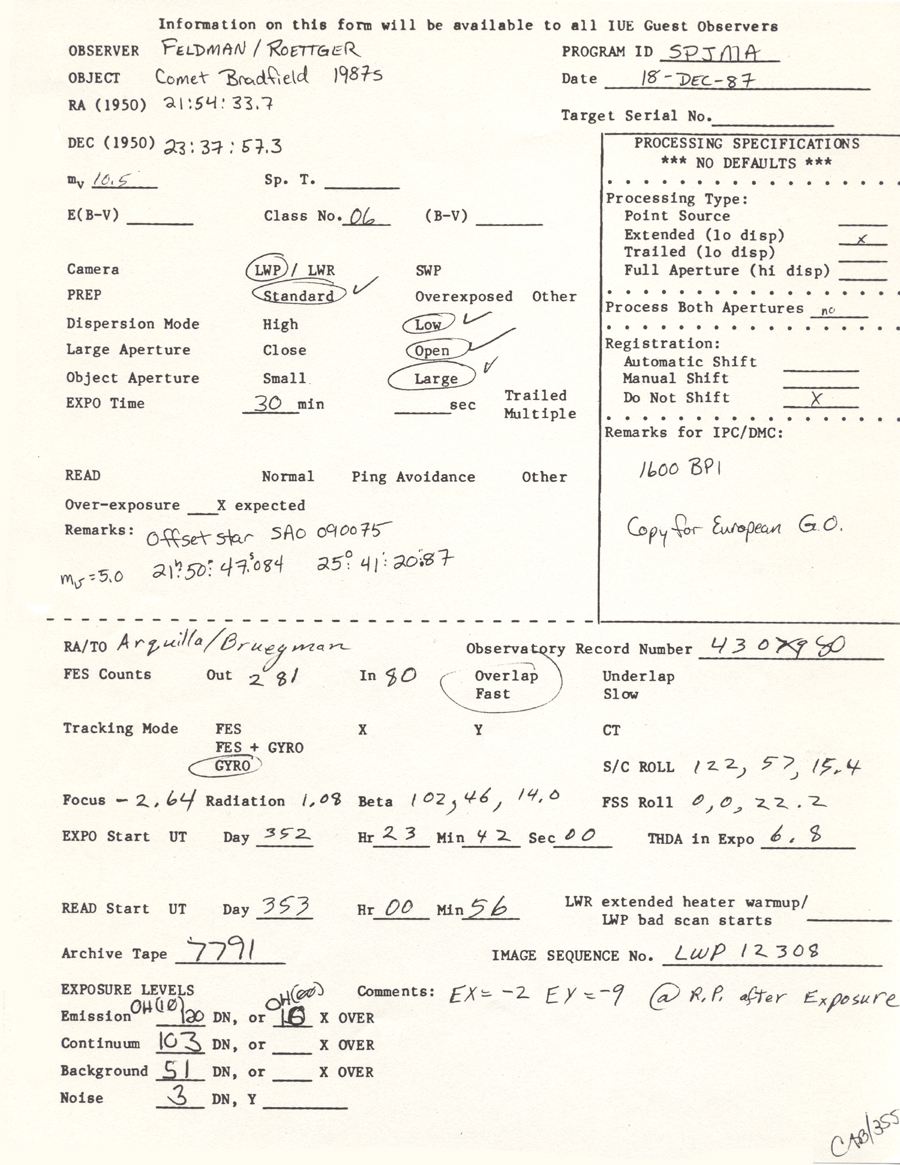 Information on this form will be available to all IUE Guest Observers
OBSERVER FELDMAN / ROETTGER PROGRAM ID SPJMA
OBJECT Comet Bradfield 1987s Date 18-DEC-87
RA (1950) 21:54:33.7
Target Serial No.
DEC (1950) 23:37:57.3
PROCESSING SPECIFICATIONS
*** NO DEFAULTS ***
mv 10.5 Sp. T.
Processing Type:
Point Source
E(B-V) Class No. 06 (B-V)
Extended (lo disp) x
Trailed (lo disp)
Camera LWP / LWR SWP
Full Aperture (hi disp)
PREP Standard ✓ Overexposed Other
Process Both Apertures no
Dispersion Mode High Low ✓
Large Aperture Close Open ✓
Registration:
Automatic Shift
Object Aperture Small Large ✓
Manual Shift
EXPO Time 30 min sec Trailed
Multiple
Do Not Shift X
Remarks for IPC/DMC:
1600 BPI
READ Normal Ping Avoidance Other
Over-exposure X expected
Copy for European G.O.
Remarks: Offset star SAO 090075
mv=5.0 21h:50m:47s.084 25°:41':20".87
RA/TO Arquilla/Bruegman Observatory Record Number 430 80
FES Counts Out 281 In 80 Overlap Underlap
Fast Slow
Tracking Mode FES X Y CT
FES + GYRO
GYRO S/C ROLL 122, 57, 15.4
Focus -2.64 Radiation 1.08 Beta 102, 46, 14.0 FSS Roll 0,0,22.2
EXPO Start UT Day 352 Hr 23 Min 42 Sec 00 THDA in Expo 6.8
READ Start UT Day 353 Hr 00 Min 56 LWR extended heater warmup/
LWP bad scan starts
Archive Tape 7791 IMAGE SEQUENCE No. LWP 12308
EXPOSURE LEVELS Comments: EX=-2 EY=-9 @ R.P. after Exposure
Emission OH(10) 120 DN, or OH(00) X OVER
Continuum 103 DN, or X OVER
Background 51 DN, or X OVER
Noise 3 DN, Y
CAB/355